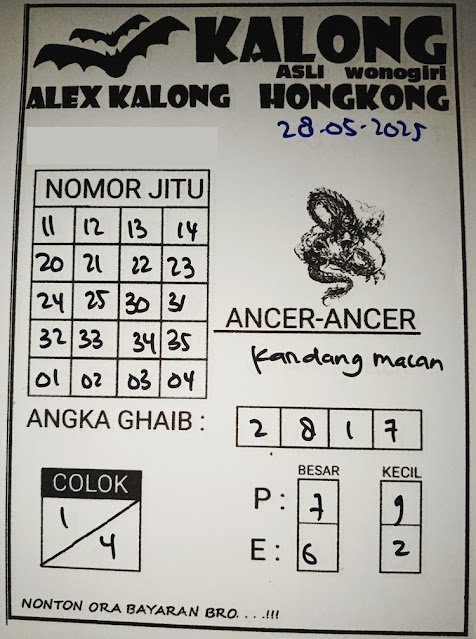 KALONG
ASLI wonogiri
ALEX KALONG HONGKONG
28-05-2025
NOMOR JITU
11 12 13 14
20 21 22 23
24 25 30 31
32 33 34 35
01 02 03 04
ANCER-ANCER
Kandang macan
ANGKA GHAIB : 2 8 1 7
COLOK
1
4
BESAR KECIL
P : 7 9
E : 6 2
NONTON ORA BAYARAN BRO. . . .!!!